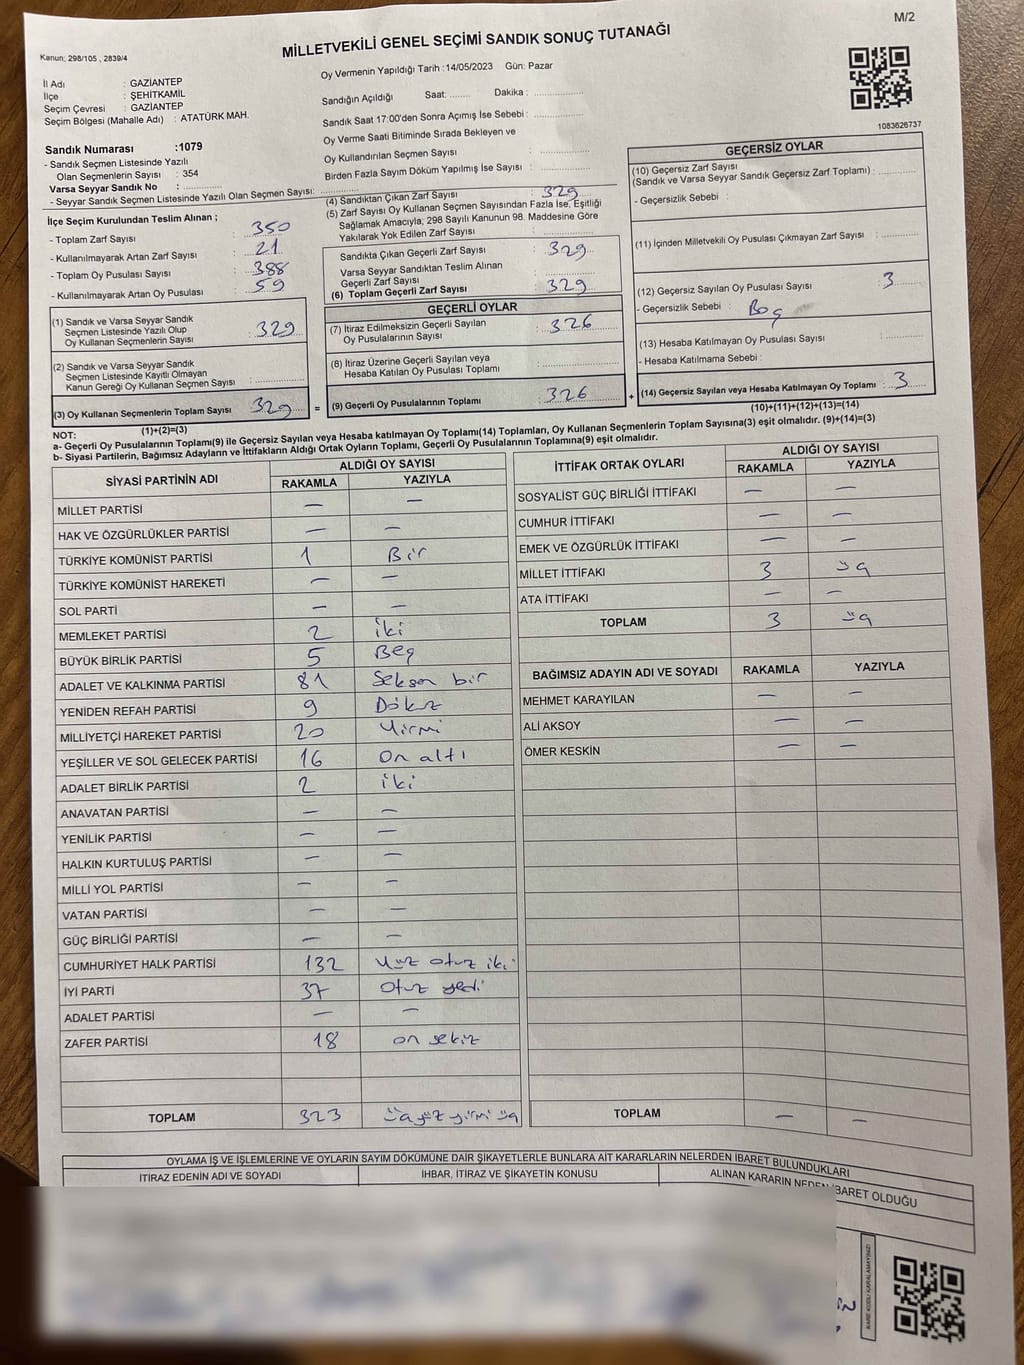 M/2
Kanun; 298/105 , 2839/4
MİLLETVEKİLİ GENEL SEÇİMİ SANDIK SONUÇ TUTANAĞI
İl Adı : GAZİANTEP
İlçe : ŞEHİTKAMİL
Seçim Çevresi : GAZİANTEP
Seçim Bölgesi (Mahalle Adı) : ATATÜRK MAH.
Sandık Numarası :1079
- Sandık Seçmen Listesinde Yazılı
Olan Seçmenlerin Sayısı : 354
Varsa Seyyar Sandık No :
- Seyyar Sandık Seçmen Listesinde Yazılı Olan Seçmen Sayısı:
Oy Vermenin Yapıldığı Tarih :14/05/2023 Gün: Pazar
Sandığın Açıldığı Saat: Dakika :
Sandık Saat 17:00'den Sonra Açımış İse Sebebi :
Oy Verme Saati Bitiminde Sırada Bekleyen ve
Oy Kullandırılan Seçmen Sayısı :
Birden Fazla Sayım Döküm Yapılmış İse Sayısı :
1083626737
İlçe Seçim Kurulundan Teslim Alınan ;
- Toplam Zarf Sayısı : 350
- Kullanılmayarak Artan Zarf Sayısı : 21
- Toplam Oy Pusulası Sayısı : 388
- Kullanılmayarak Artan Oy Pusulası : 59
(1) Sandık ve Varsa Seyyar Sandık
Seçmen Listesinde Yazılı Olup
Oy Kullanan Seçmenlerin Sayısı : 329
(2) Sandık ve Varsa Seyyar Sandık
Seçmen Listesinde Kayıtlı Olmayan
Kanun Gereği Oy Kullanan Seçmen Sayısı :
(3) Oy Kullanan Seçmenlerin Toplam Sayısı 329
(1)+(2)=(3)
(4) Sandıktan Çıkan Zarf Sayısı : 329
(5) Zarf Sayısı Oy Kullanan Seçmen Sayısından Fazla İse, Eşitliği
Sağlamak Amacıyla; 298 Sayılı Kanunun 98. Maddesine Göre
Yakılarak Yok Edilen Zarf Sayısı :
Sandıkta Çıkan Geçerli Zarf Sayısı : 329
Varsa Seyyar Sandıktan Teslim Alınan
Geçerli Zarf Sayısı :
(6) Toplam Geçerli Zarf Sayısı : 329
GEÇERLİ OYLAR
(7) İtiraz Edilmeksizin Geçerli Sayılan
Oy Pusulalarının Sayısı : 326
(8) İtiraz Üzerine Geçerli Sayılan veya
Hesaba Katılan Oy Pusulası Toplamı :
= (9) Geçerli Oy Pusulalarının Toplamı : 326 +
GEÇERSİZ OYLAR
(10) Geçersiz Zarf Sayısı
(Sandık ve Varsa Seyyar Sandık Geçersiz Zarf Toplamı) :
- Geçersizlik Sebebi :
(11) İçinden Milletvekili Oy Pusulası Çıkmayan Zarf Sayısı :
(12) Geçersiz Sayılan Oy Pusulası Sayısı : 3
- Geçersizlik Sebebi : Boş
(13) Hesaba Katılmayan Oy Pusulası Sayısı :
- Hesaba Katılmama Sebebi :
(14) Geçersiz Sayılan veya Hesaba Katılmayan Oy Toplamı : 3
(10)+(11)+(12)+(13)=(14)
NOT:
a- Geçerli Oy Pusulalarının Toplamı(9) ile Geçersiz Sayılan veya Hesaba katılmayan Oy Toplamı(14) Toplamları, Oy Kullanan Seçmenlerin Toplam Sayısına(3) eşit olmalıdır. (9)+(14)=(3)
b- Siyasi Partilerin, Bağımsız Adayların ve İttifakların Aldığı Ortak Oyların Toplamı, Geçerli Oy Pusulalarının Toplamına(9) eşit olmalıdır.
SİYASİ PARTİNİN ADI ALDIĞI OY SAYISI
RAKAMLA YAZIYLA
MİLLET PARTİSİ — —
HAK VE ÖZGÜRLÜKLER PARTİSİ — —
TÜRKİYE KOMÜNİST PARTİSİ 1 Bir
TÜRKİYE KOMÜNİST HAREKETİ — —
SOL PARTİ — —
MEMLEKET PARTİSİ 2 iki
BÜYÜK BİRLİK PARTİSİ 5 Beş
ADALET VE KALKINMA PARTİSİ 81 Seksen bir
YENİDEN REFAH PARTİSİ 9 Dokuz
MİLLİYETÇİ HAREKET PARTİSİ 20 Yirmi
YEŞİLLER VE SOL GELECEK PARTİSİ 16 On altı
ADALET BİRLİK PARTİSİ 2 iki
ANAVATAN PARTİSİ — —
YENİLİK PARTİSİ — —
HALKIN KURTULUŞ PARTİSİ — —
MİLLİ YOL PARTİSİ — —
VATAN PARTİSİ — —
GÜÇ BİRLİĞİ PARTİSİ — —
CUMHURİYET HALK PARTİSİ 132 Yüz otuz iki
İYİ PARTİ 37 Otuz yedi
ADALET PARTİSİ — —
ZAFER PARTİSİ 18 on sekiz
TOPLAM 323 üçyüz yirmi üç
İTTİFAK ORTAK OYLARI ALDIĞI OY SAYISI
RAKAMLA YAZIYLA
SOSYALİST GÜÇ BİRLİĞİ İTTİFAKI — —
CUMHUR İTTİFAKI — —
EMEK VE ÖZGÜRLÜK İTTİFAKI — —
MİLLET İTTİFAKI 3 üç
ATA İTTİFAKI — —
TOPLAM 3 üç
BAĞIMSIZ ADAYIN ADI VE SOYADI RAKAMLA YAZIYLA
MEHMET KARAYILAN — —
ALİ AKSOY — —
ÖMER KESKİN — —
TOPLAM — —
OYLAMA İŞ VE İŞLEMLERİNE VE OYLARIN SAYIM DÖKÜMÜNE DAİR ŞİKAYETLERLE BUNLARA AİT KARARLARIN NELERDEN İBARET BULUNDUKLARI
İTİRAZ EDENİN ADI VE SOYADI İHBAR, İTİRAZ VE ŞİKAYETİN KONUSU ALINAN KARARIN NEDEN İBARET OLDUĞU
KARE KODU KARALAMAYINIZ!